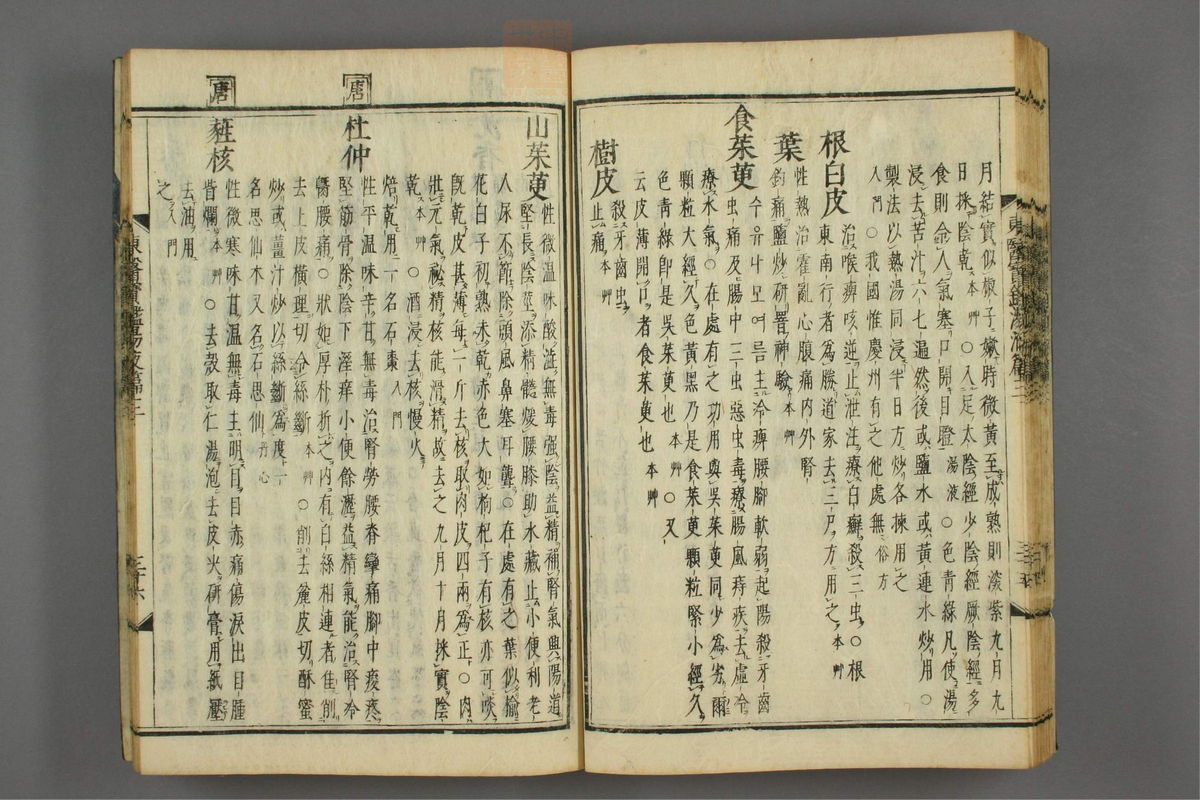 月結實似椒子嫩時微黃至成熟則淡紫九月九
日採陰乾本艸○入足太陰經少陰經厥陰經多
食則令人氣塞口開目瞪湯液○色青綠凡使湯
浸去苦汁六七遍然後或鹽水或黃連水炒用○
製法以熱湯同浸半日方炒各揀用之
入門○我國惟慶州有之他處無俗方
根白皮治喉痺咳逆止泄注療白癬殺三虫○根
東南行者為勝道家去三尺方用之本艸
葉性熱治霍亂心腹痛內外腎
釣痛鹽炒研罯神驗本艸
食茱萸수유나모여름主冷痺腰脚軟弱起陽殺牙齒
虫痛及腸中三虫惡虫毒療腸風痔疾去虛冷
療水氣○在處有之功用與吳茱萸同少為劣爾
顆粒大經久色黃黑乃是食茱萸顆粒緊小經久
色青綠卽是吳茱萸也本艸○又
云皮薄開口者食茱萸也本艸
樹皮殺牙齒虫
止痛本艸
東醫寶鑑湯液篇三
山茱萸性微溫味酸澁無毒強陰益精補腎氣興陽道
堅長陰莖添精髓煖腰膝助水藏止小便利老
人尿不節除頭風鼻塞耳聾○在處有之葉似楡
花白子初熟未乾赤色大如枸杞子有核亦可啖
旣乾皮甚薄每一斤去核取肉皮四兩為正○肉
壯元氣祕精核能滑精故去之九月十月採實陰
乾本艸○酒浸去核慢火
焙乾用一名石棗入門
唐
杜仲性平溫味辛甘無毒治腎勞腰脊攣痛脚中痠疼
堅筋骨除陰下濕痒小便餘瀝益精氣能治腎冷
䐴腰痛○狀如厚朴折之內有白絲相連者佳削
去上皮橫理切令絲斷本艸○削去麁皮切酥蜜
炒或薑汁炒以絲斷為度一
名思仙木又名石思仙丹心
唐
蕤核性微寒味甘溫無毒主明目目赤痛傷淚出目腫
眥爛本艸○去殼取仁湯泡去皮火研膏用紙壓
去油用
之入門
東醫寶鑑湯液篇三
三十六